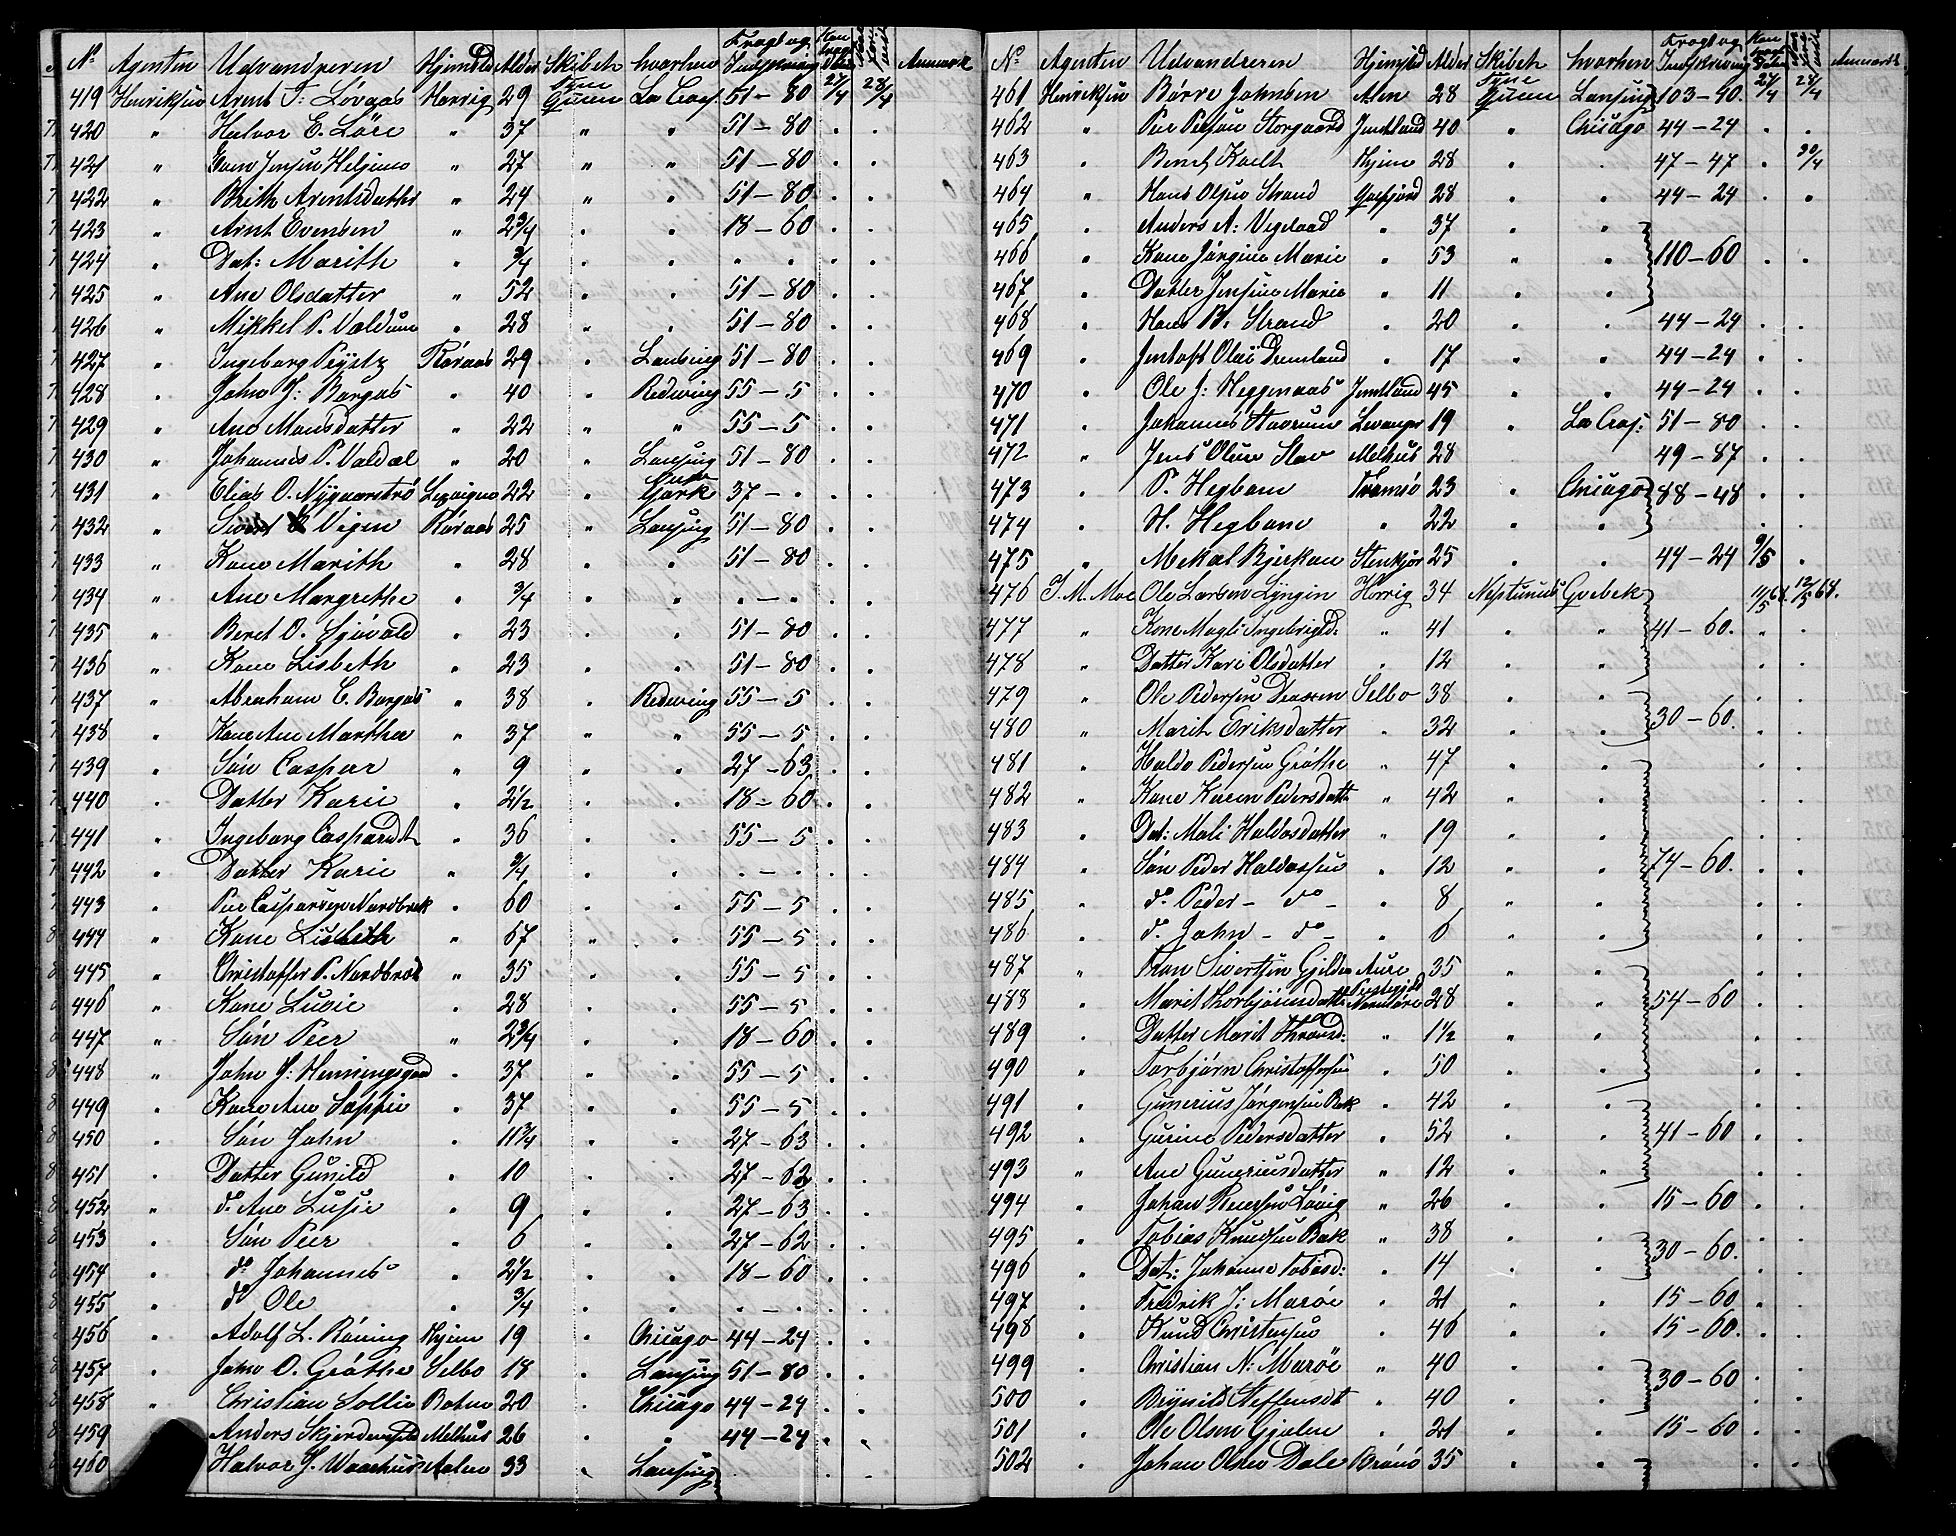 No Agenten Udvandreren Hjemsted Alder Skibets hvorhen Fragt og Indskrivning Anmærk
419 Henriksen Arent J: Løvaas Horrig 29 Tyne Queen La Cros. 51-80 27/4 28/4
420 " Halvor E. Löre " 37 " " 51-80 . .
421 " Jensen " 27 " " 51-80 . .
422 " Brith Arentsdatter " 24 " " 51-80 . .
423 " Arnt Evensen " 2 3/4 . . 18-60 . .
424 " Dat: Marith " 3/4 . " . . . .
425 " Ane Olsdatter " 52 . . 51-80 . .
426 " Mikkel P. " 28 . . 51-80 . .
427 " Ingeborg Röraas 29 . Lansing 51-80 . .
428 . John J: Borgos . 40 . Redwing 55-5 . .
429 " Ane Monsdatter . 22 . " 55-5 . .
430 " Johannes P. Valdal . 20 " Lansing 51-80 . .
431 " Elias O. 22 " 37-. . .
432 " Vigen Röraas 25 " Lansing 51-80 . .
433 " Kone Marith . 28 . . 51-80 . .
434 " Ane Margrethe . 3/4 . . .-. . .
435 " Beret O. . 23 . . 51-80 . .
436 " Kone Lisbeth . 23 . . 51-80 . .
437 " Abraham C. Borgos " 38 . Redwing 55-5 . .
438 " Kone Ane Marthea " 37 " " 55-5 . .
439 " Sön Caspar " 9 " . 27-63 . .
440 " Datter Karie " 2 1/2 . . 18-60 . .
441 " Ingeborg " 36 . . 55-5 . .
442 " Datter Karie " 3/4 . . .-. . .
443 " Peer Caspersen " 60 . . 55-5 . .
444 " Kone Lisbeth " 67 " . 55-5 . .
445 " Christoffer P. " 35 . . 55-5 . .
446 " Kone Lusie " 28 . . 55-5 . .
447 " Sön Peer " 2 3/4 . . 18-60 . .
448 " John J: Henningsgaard . 37 " . 55-5 . .
449 . Kone Ane Sophie . 37 . . 55-5 . .
450 . Sön John . 11 3/4 . . 27-63 . .
451 . Datter Gunild . 10 . . 27-62 . .
452 " do Ane Lusie . 9 . . 27-63 . .
453 . Sön Peer " 6 . . 27-62 . .
454 . do Johannes . 2 1/2 . . 18-60 . .
455 . do Ole . 3/4 . . .-. . .
456 . Adolf L. Röning Hjem 19 . Chicago 44-24 . .
457 " John O. Gröthe Selbo 18 . Lansing 51-80 . .
458 " Christian Sollie 20 . Chicago 44-24 . .
459 Anders Melhus 26 . . 44-24 . .
460 Halvor J. Aalen 33 . Lansing

No Agenten Udvandreren Hjemsted Alder Skibets hvorhen Fragt og Indskrivning Anmærk
461 Henriksen Börre Johnsen Alen 28 Tyne Queen Lansing 103-40 27/4 28/4
462 " Per Persen Storgaard Jemtland 40 . Chicago 44-24 . .
463 . Bernt Hjem 28 . . 47-47 . 30/4
464 " Hans Olsen Strand 28 . . 44-24 . .
465 . Anders A: . 37 . "
466 " Kone Jörgine Marie . 53 " . 110-60 . .
467 . Datter Jensine Marie . 11 . .
468 . Hans B. Strand . 20 . . 44-24 . .
469 . . 17 " . 44-24 . .
470 " Ole J: Jemtland 45 . . 44-24 . .
471 . Johannes Stavrum Levanger 19 . La Cros: 51-80 . .
472 " Jens Melhus 28 49-87 . .
473 " P. Hegbom Tromsö 23 . Chicago 88-48 . .
474 . H. Hegbom . 22 . . . .
475 . Stenkjær 25 . . 44-24 9/5 .
476 T. M. Moe Ole Larsen Horrig 34 Neptunus Qvebek 11/5 68. 12/5 68.
477 " Kone Magli Ingebrigtd. " 41 . " 41-60. . .
478 " Datter Kari Olsdatter . 12 . . . .
479 " Ole Pedersen Selbo 38 . "
480 " Marit Eriksdatter . 32 . . 30-60. . .
481 " Haldo Pedersen Gröthe " 47 . . . .
482 " Kone Karen Pedersdatt " 42 . . . .
483 " Dat: Mali Haldosdatter " 19 . . . .
484 " Sön Peder Haldossen . 12 . . 74-60. . .
485 . do Peder - do - . 8 . " . .
486 . do John - do - . 6 . . . .
487 " Sivertsen Aure 35 " " . .
488 " Marit Torbjörnsdatter 28 . . 54-60 . .
489 . Datter Marit . 1 1/2 . " . .
490 " Torbjörn Christoffersen . 50 . . . .
491 . Gunerius Jörgensen Bak . 42 . . . .
492 . Gurine Pedersdatter . 52 . . 41-60 . .
493 " Ane Guneriusdatter " 12 . . . .
494 . Johan " 26 . . 15-60 . .
495 . Tobias Knudsen Bak " 38 . .
496 . Dat: Johanne Tobiasd: . 14 . . 30-60. . .
497 . Fredrik J: Maröe " 21 . . 15-60 . .
498 . Knud Christensen . 46 . . 15-60. . .
499 . Christian N: Maröe " 40 . .
500 . Steffensdt . 40 . . 30-60 . .
501 . Ole Olsen . 21 . . 15-60. . .
502 . Johan Olsen Dale Brönö 35 . . . .